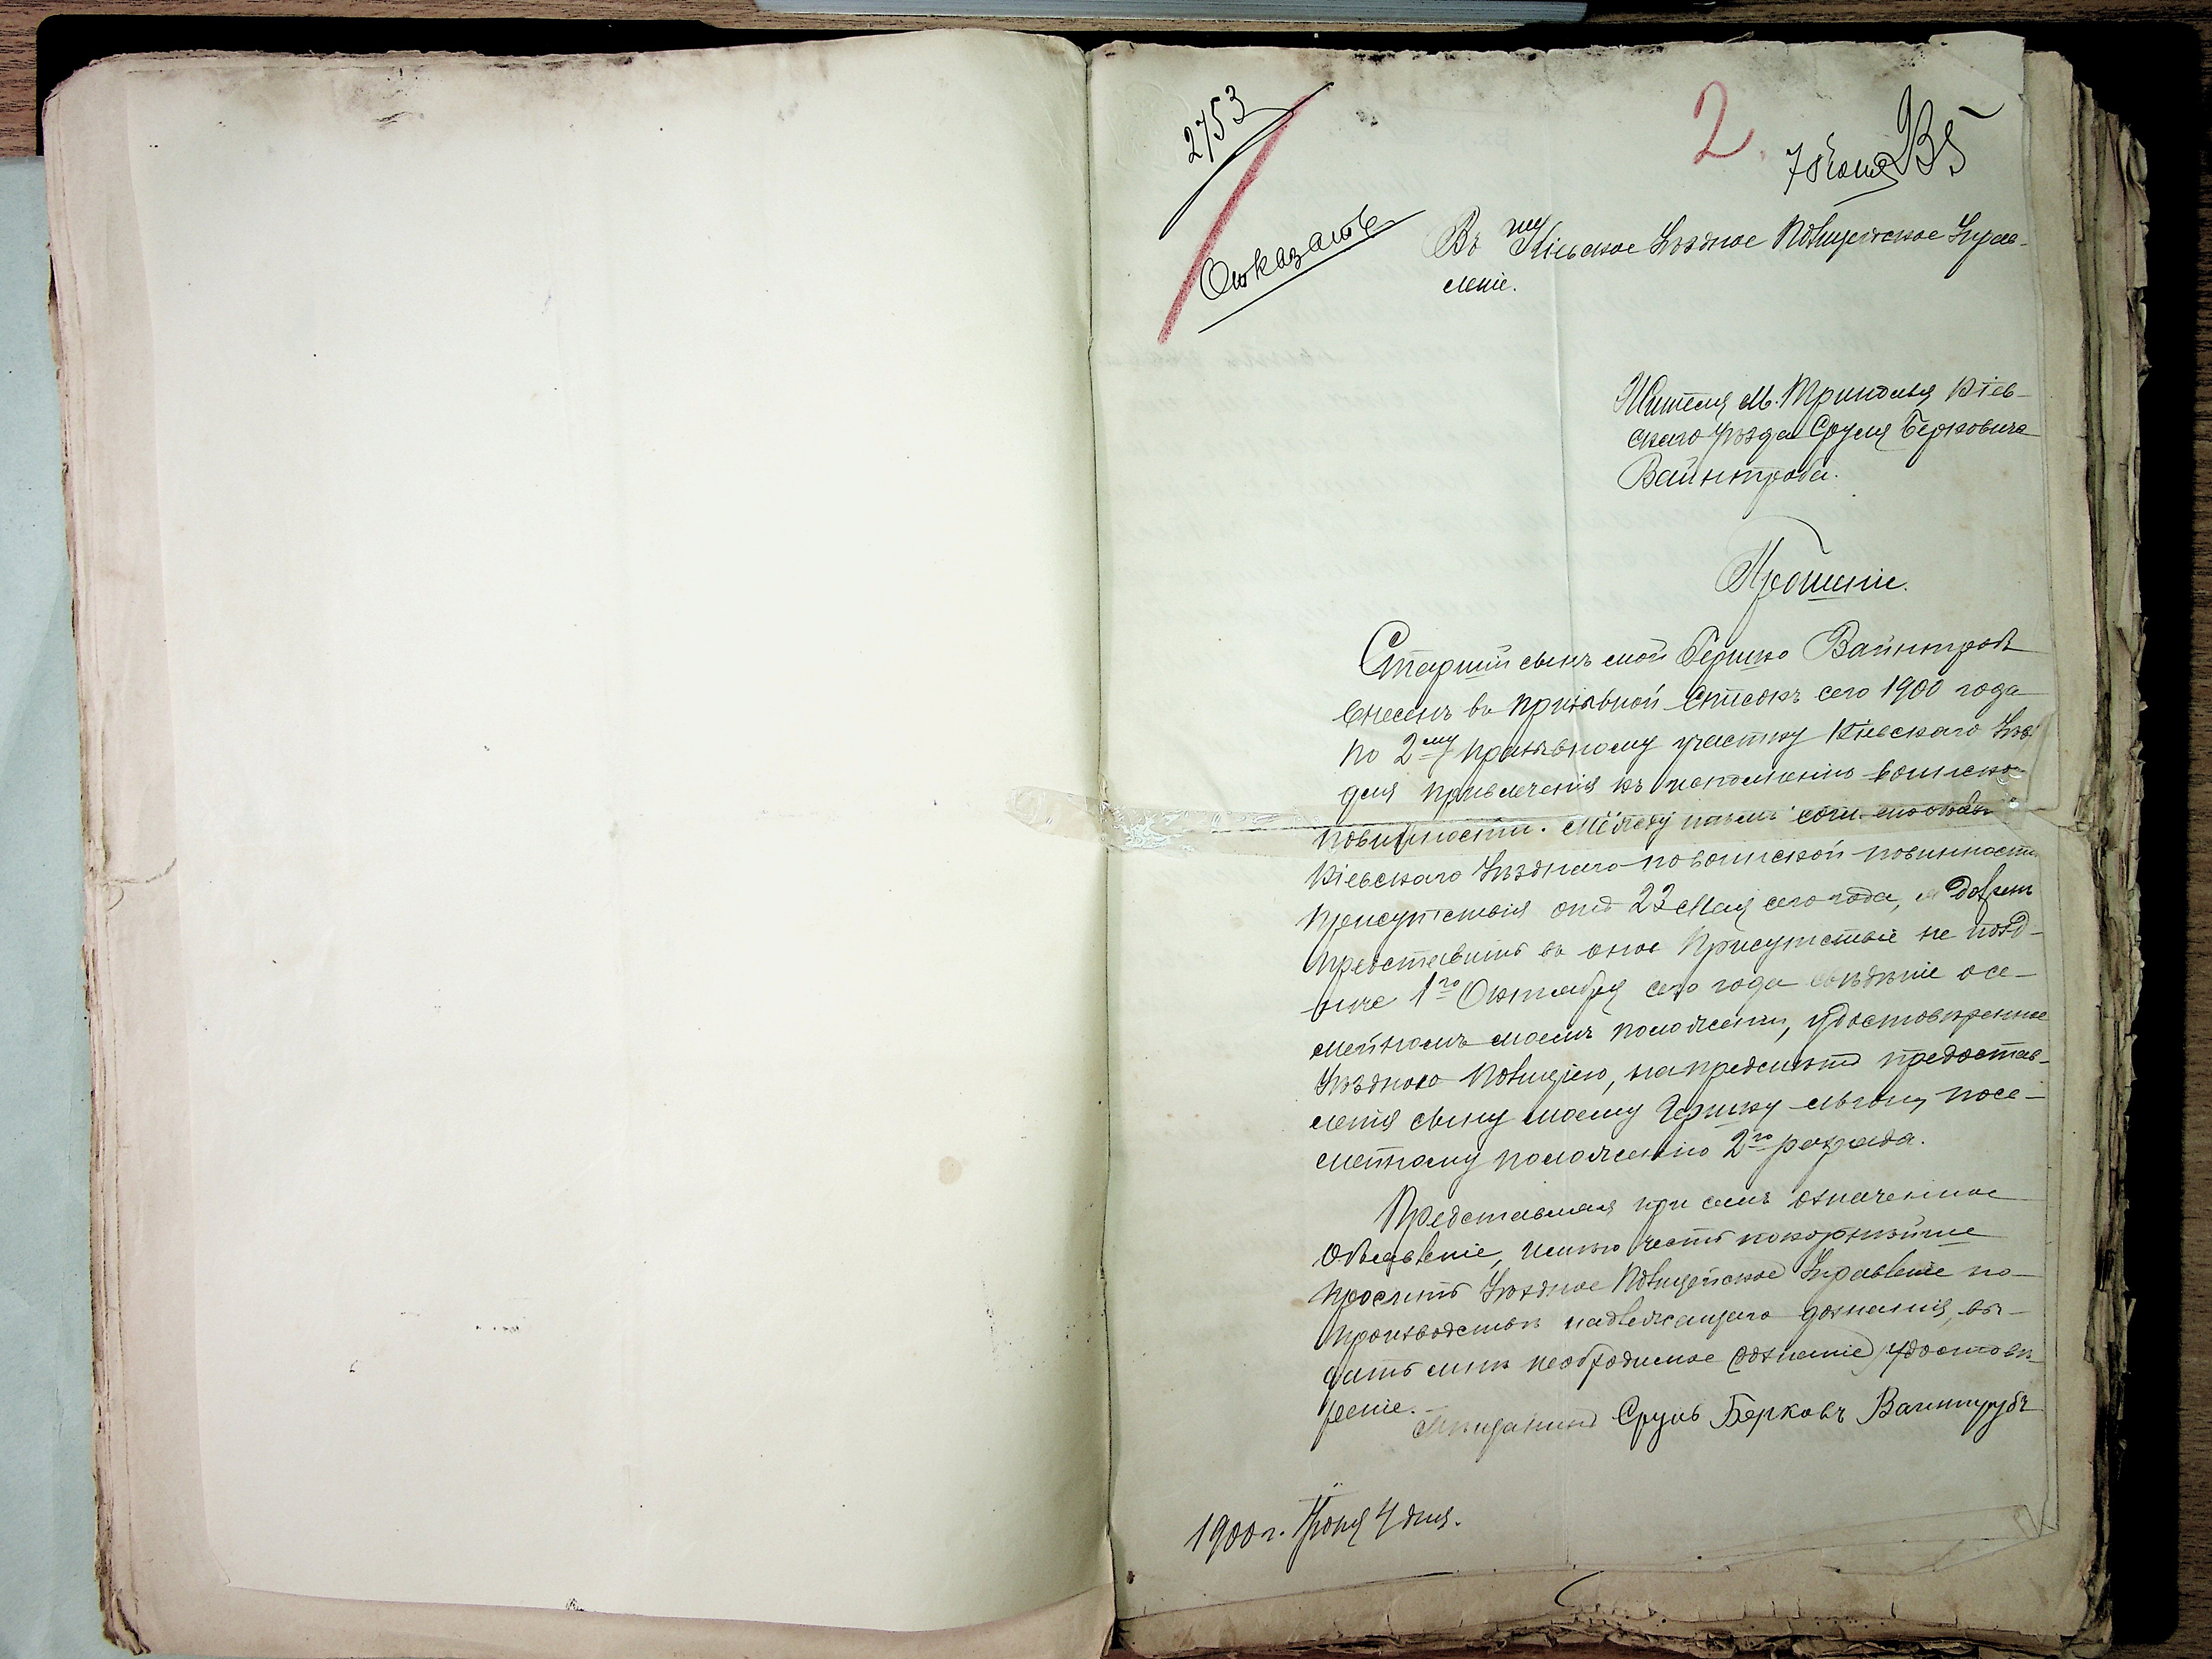 2753
2
7 Юня
Отказать
Въ Кіевское Уѣздное Полицейское Управ-
леніе.
Жителя м. Триполья Кіев-
скаго уѣзда Сруля Берковича
Вайнтроба.
Прошеніе.
Старшій сынъ мой Гершко Вайнтроб
внесенъ въ призывной списокъ сего 1900 года
по 2му призывному участку Кіевскаго Уѣз.
для привлеченія къ исполненію воинской
повинности. Между тѣмъ
Кіевскаго Уѣзднаго по воинской повинности
Присутствія отъ 23 Мая сего года, я долженъ
представить въ оное Присутствіе не позд-
нѣе 1го Октября сего года свѣдѣніе о се-
мейномъ моемъ положеніи, удостовѣренное
Уѣздною Полиціею, на предметъ предостав-
ленія сыну моему Гершку льготы по се-
мейному положенію 2го разряда.
Представляя при семъ означенное
объявленіе, имѣю честь покорнѣйше
просить Уѣздное Полицейское Управленіе по
производствѣ надлежащаго дознанія, вы-
дать мнѣ необходимое дознаніе удостовѣ-
реніе.
Мѣщанинъ Сруль Берковъ Ваинтрубъ
1900 г. Іюня 4 дня.